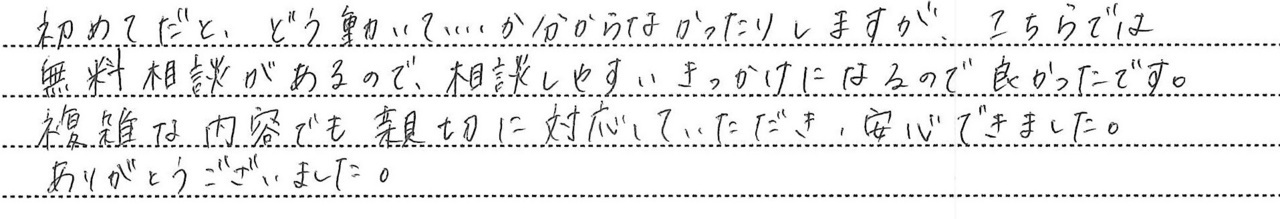 初めてだと、どう動いていいか分からなかったりしますが、こちらでは
無料相談があるので、相談しやすいきっかけになるので良かったです。
複雑な内容でも親切に対応していただき、安心できました。
ありがとうございました。